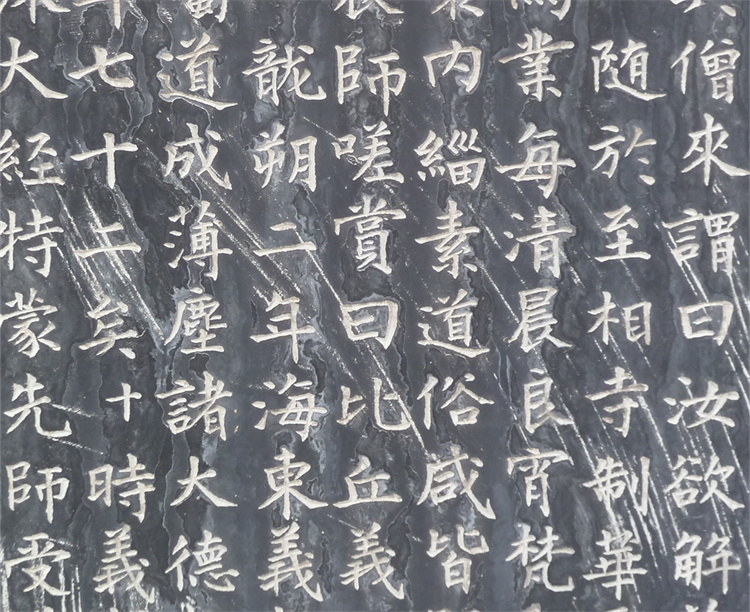 僧來謂曰汝欲解
随於至相寺制華
業每清晨良宵梵
内緇素道俗咸皆
師嗟賞曰比丘義
龍朔二年海東義
道成薄塵諸大德
七十上矣十時義
大経特蒙先師受